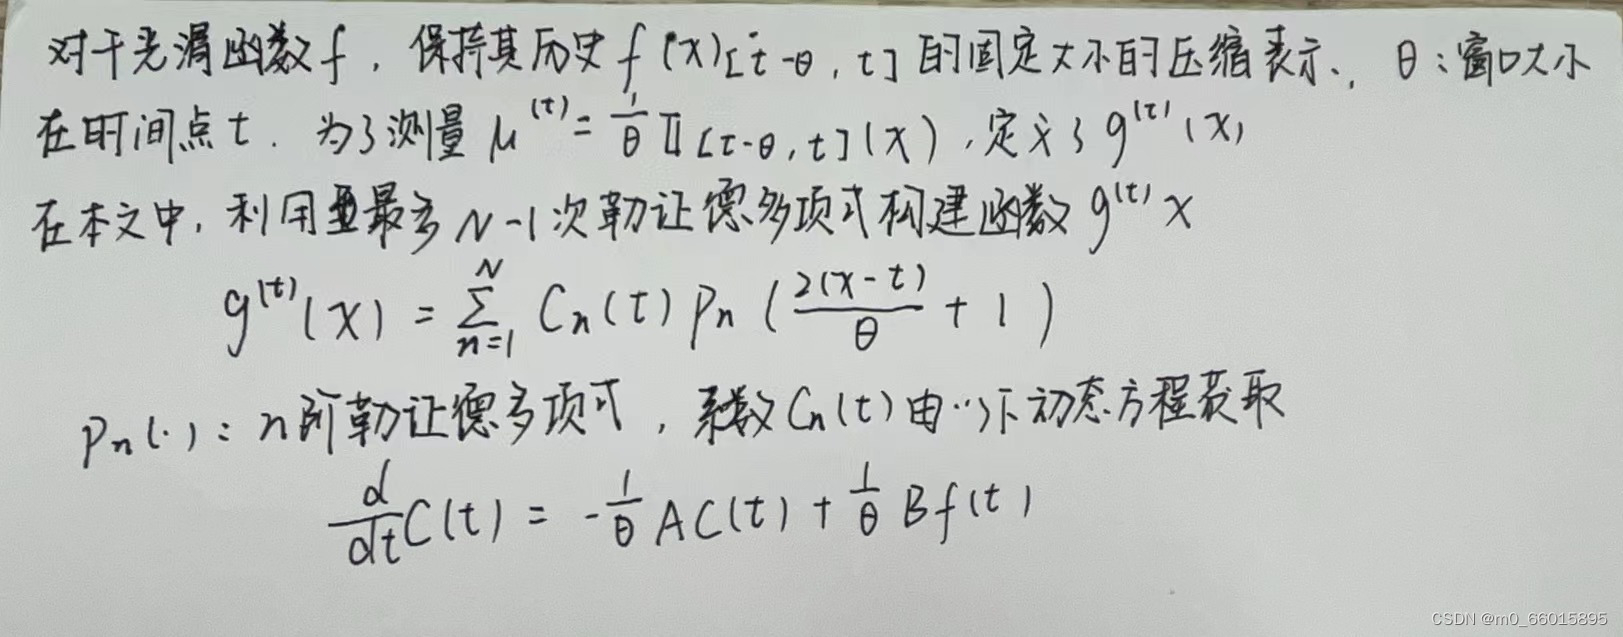 对于光滑函数f，保持其历史f(x)[t-θ, t]的固定大小的压缩表示., θ：窗口大小
在时间点t. 为了测量 μ^(t) = 1/θ 𝕀[t-θ, t](x)，定义了g^(t)(x)
在本文中，利用最多N-1次勒让德多项式构建函数g^(t)x
g^(t)(x) = Σ_{n=1}^{N} Cn(t) Pn (2(x-t)/θ + 1)
Pn(·)：n阶勒让德多项式，系数Cn(t)由以下动态方程获取
d/dt C(t) = -1/θ AC(t) + 1/θ Bf(t)
CSDN @m0_66015895